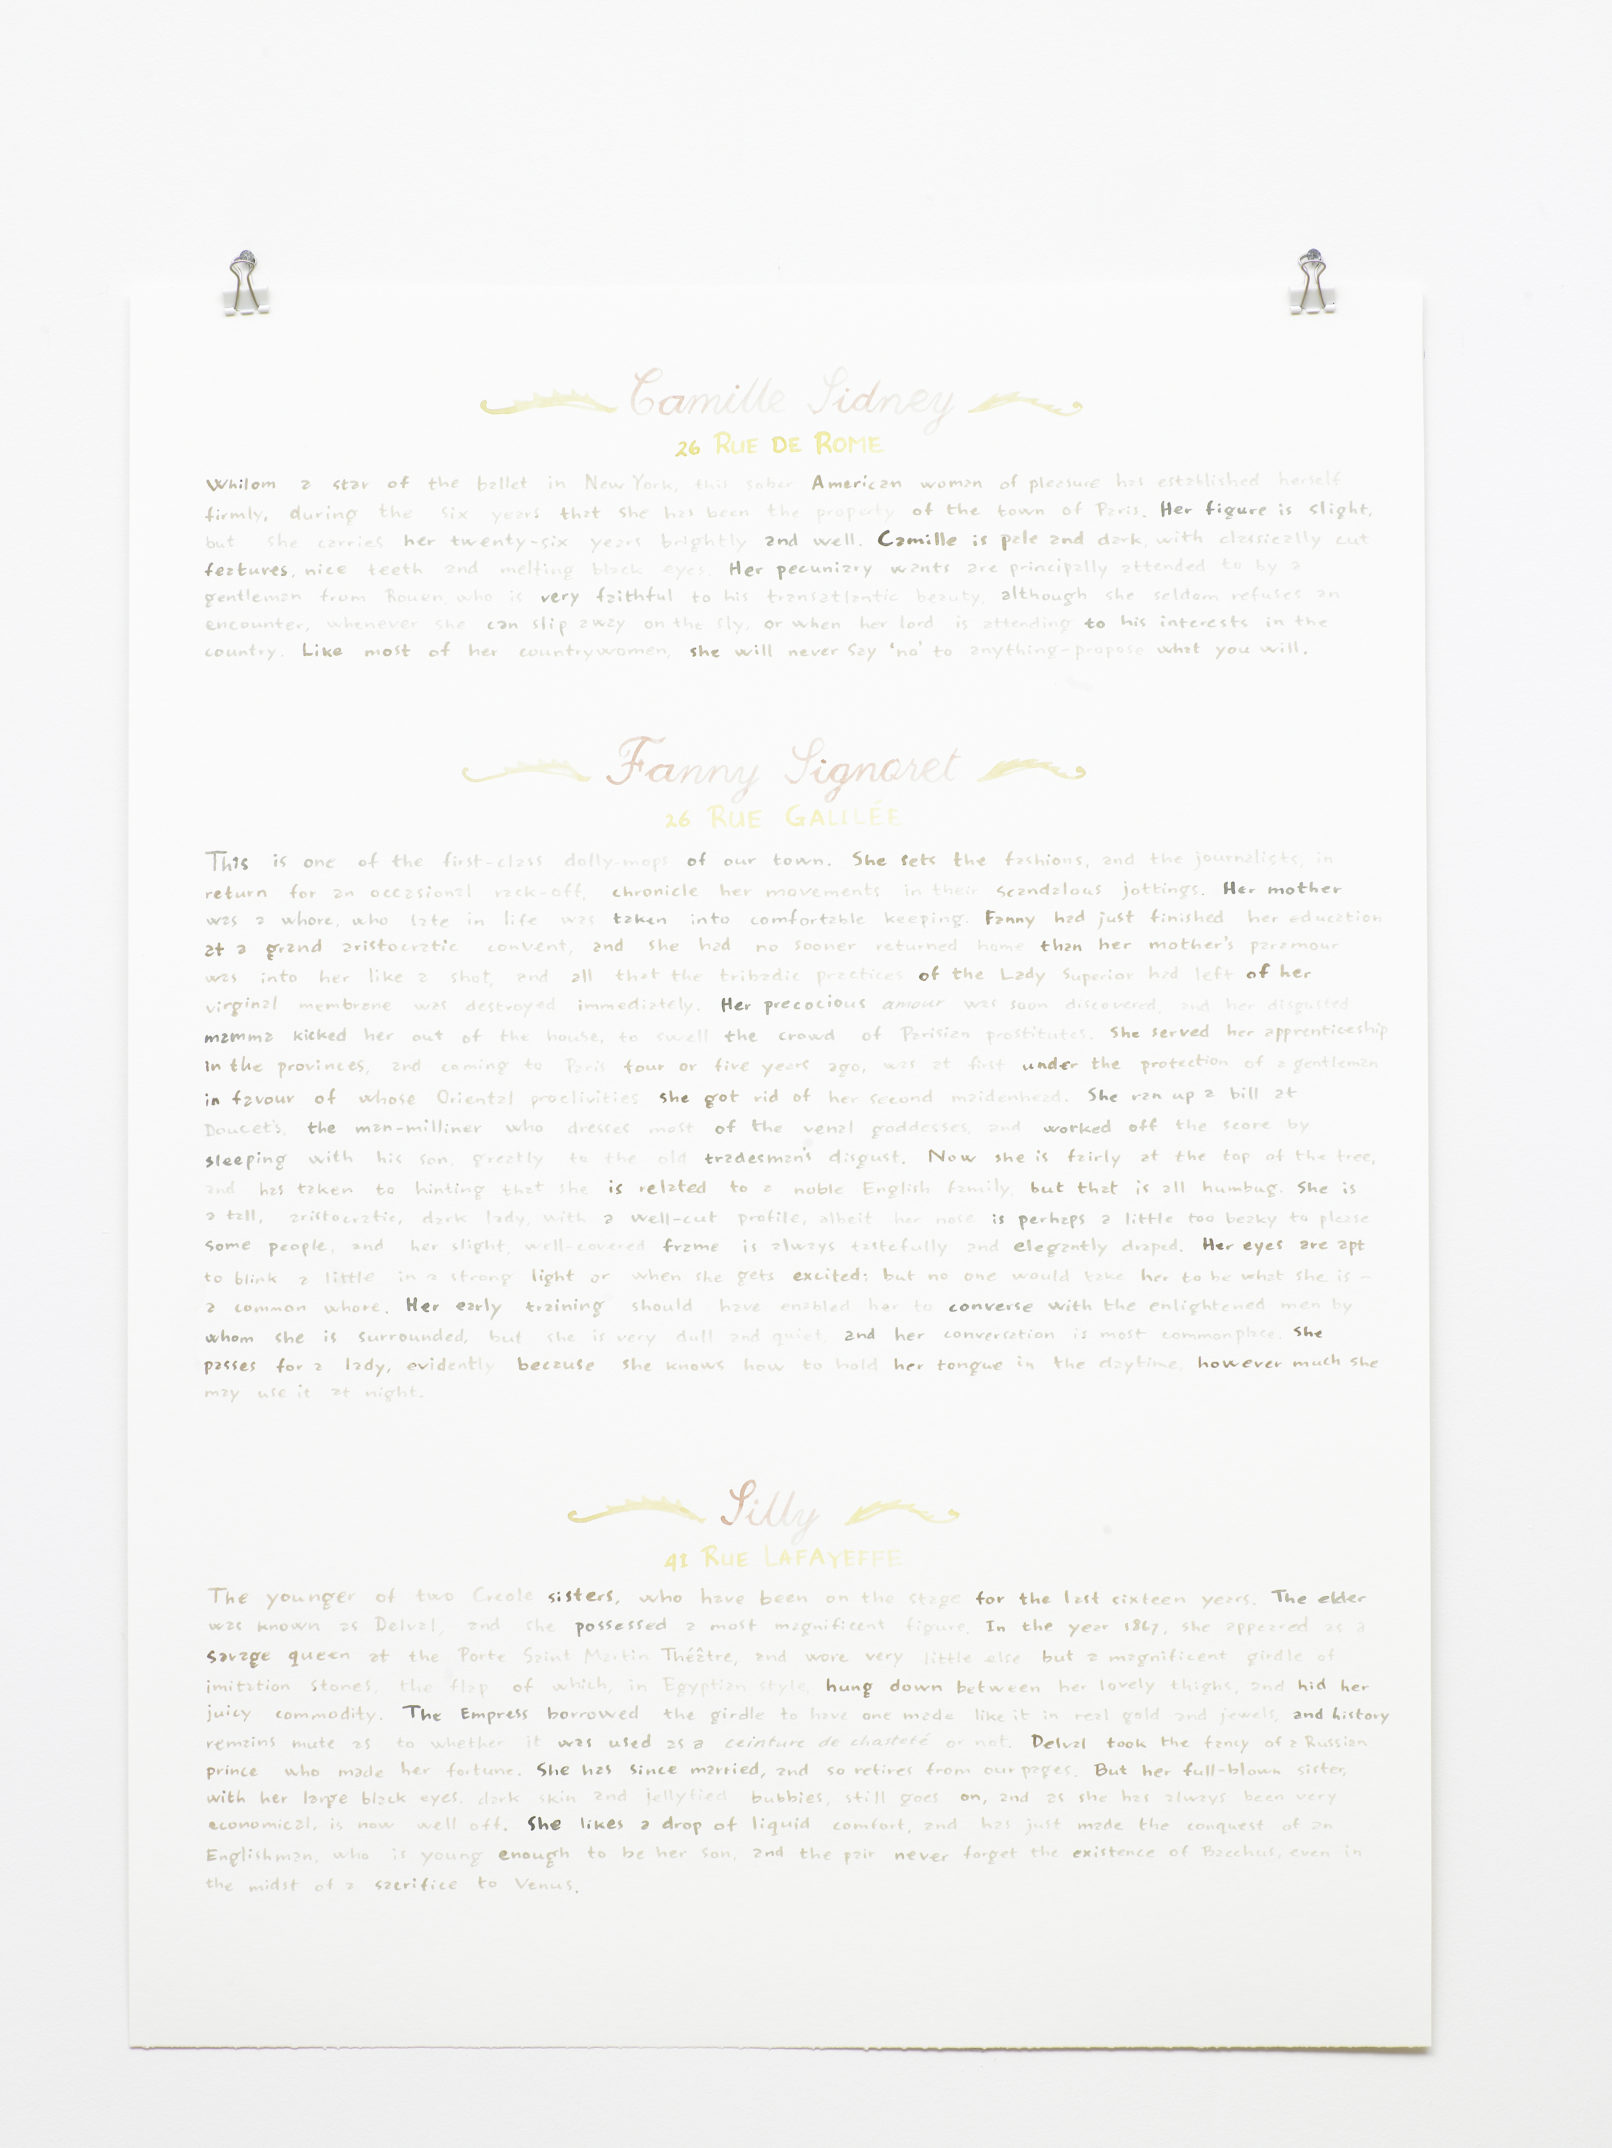 Camille Sidney
26 RUE DE ROME
Whilom a star of the ballet in New York, this sober American woman of pleasure has established herself
firmly, during the six years that she has been the property of the town of Paris. Her figure is slight,
but she carries her twenty-six years brightly and well. Camille is pale and dark, with classically cut
features, nice teeth and melting black eyes. Her pecuniary wants are principally attended to by a
gentleman from Rouen, who is very faithful to his transatlantic beauty, although she seldom refuses an
encounter, whenever she can slip away on the sly, or when her lord is attending to his interests in the
country. Like most of her countrywomen, she will never say ‘no’ to anything-propose what you will.
Fanny Signoret
26 RUE GALILÉE
This is one of the first-class dolly-mops of our town. She sets the fashions, and the journalists, in
return for an occasional rack-off, chronicle her movements in their scandalous jottings. Her mother
was a whore, who late in life was taken into comfortable keeping. Fanny had just finished her education
at a grand aristocratic convent, and she had no sooner returned home than her mother's paramour
was into her like a shot, and all that the tribadic practices of the Lady Superior had left of her
virginal membrane was destroyed immediately. Her precocious amour was soon discovered, and her disgusted
mamma kicked her out of the house, to swell the crowd of Parisian prostitutes. She served her apprenticeship
in the provinces, and coming to Paris four or five years ago, was at first under the protection of a gentleman
in favour of whose Oriental proclivities she got rid of her second maidenhead. She ran up a bill at
Doucet's, the man-milliner who dresses most of the venal goddesses, and worked off the score by
sleeping with his son, greatly to the old tradesman's disgust. Now she is fairly at the top of the tree,
and has taken to hinting that she is related to a noble English family, but that is all humbug. She is
a tall, aristocratic, dark lady, with a well-cut profile, albeit her nose is perhaps a little too beaky to please
some people, and her slight well-covered frame is always tastefully and elegantly draped. Her eyes are apt
to blink a little in a strong light or when she gets excited; but no one would take her to be what she is –
a common whore. Her early training should have enabled her to converse with the enlightened men by
whom she is surrounded, but she is very dull and quiet, and her conversation is most commonplace. She
passes for a lady, evidently because she knows how to hold her tongue in the daytime, however much she
may use it at night.
Silly
41 RUE LAFAYEFFE
The younger of two Creole sisters, who have been on the stage for the last sixteen years. The elder
was known as Delval, and she possessed a most magnificent figure. In the year 1867, she appeared as a
savage queen at the Porte Saint Martin Théâtre, and wore very little else but a magnificent girdle of
imitation stones, the flap of which, in Egyptian style, hung down between her lovely thighs, and hid her
juicy commodity. The Empress borrowed the girdle to have one made like it in real gold and jewels, and history
remains mute as to whether it was used as a ceinture de chasteté or not. Delval took the fancy of a Russian
prince who made her fortune. She has since married, and so retires from our pages. But her full-blown sister,
with her large black eyes, dark skin and jellyfied bubbies, still goes on, and as she has always been very
economical, is now well off. She likes a drop of liquid comfort, and has just made the conquest of an
Englishman, who is young enough to be her son, and the pair never forget the existence of Bacchus, even in
the midst of a sacrifice to Venus.